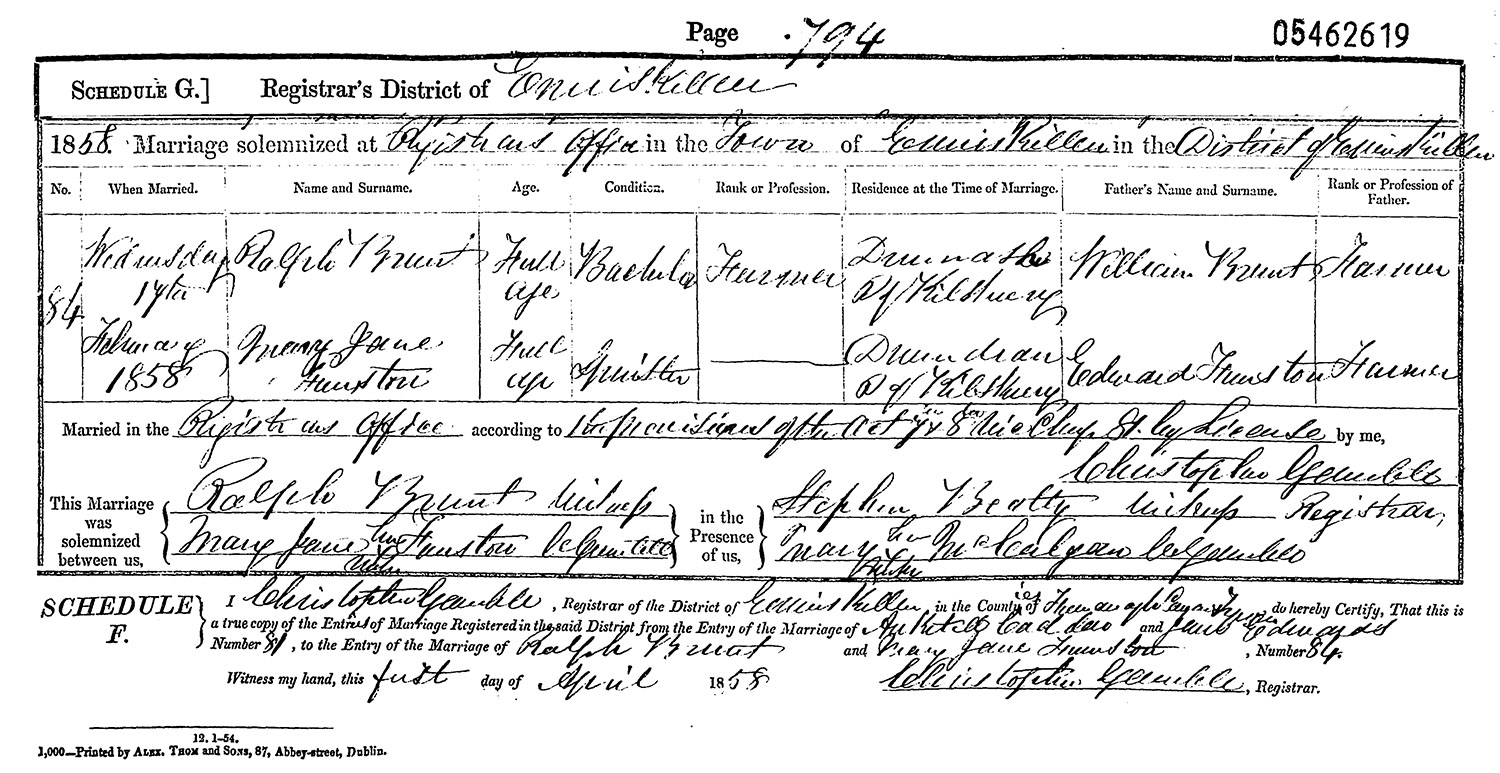 Page 794 05462619
SCHEDULE G.] Registrar's District of Enniskillen
1858. Marriage solemnized at Registrars Office in the Town of Enniskillen in the District of Enniskillen
No. When Married. Name and Surname. Age. Condition. Rank or Profession. Residence at the Time of Marriage. Father's Name and Surname. Rank or Profession of Father.
84 Wednesday 17th February 1858
Ralph Brunt Full age Bachelor Farmer Kilskeery William Brunt Farmer
Mary Jane Funston Full age Spinster Kilskeery Edward Funston Farmer
Married in the Registrars Office according to the provisions of the Act 7 & 8 Vic Chap 81 by License by me,
Christopher Gamble
This Marriage was solemnized between us, Ralph Brunt in the Presence of us, Stephen Beatty Registrar,
Mary Jane her Funston Mary her
SCHEDULE F. I Christopher Gamble, Registrar of the District of Enniskillen, in the Counties of Fermanagh do hereby Certify, That this is
a true copy of the Entries of Marriage Registered in the said District from the Entry of the Marriage of and Jane Edwards
Number 81, to the Entry of the Marriage of Ralph Brunt and Mary Jane Funston, Number 84.
Witness my hand, this first day of April 1858 Christopher Gamble, Registrar.
12. 1-54.
1,000—Printed by ALEX. THOM AND SONS, 87, Abbey-street, Dublin.